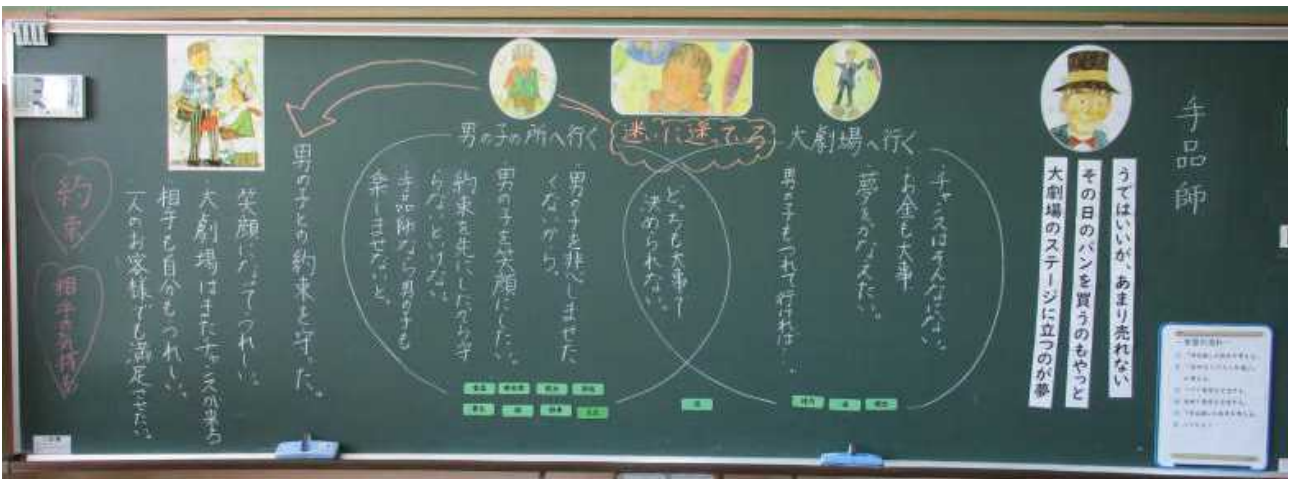 手品師
うではいいが、あまり売れない
その日のパンを買うのもやっと
大劇場のステージに立つのが夢
大劇場へ行く
チャンスはそんなにない。
お金も大事
夢をかなえたい。
男の子もつれて行ければ…
迷いに迷っている
どっちも大事で
決められない。
男の子の所へ行く
男の子を悲しませた
くないから。
男の子を笑顔にしたい。
約束を先にしたから守
らないといけない。
手品師なら男の子も
楽しませないと。
男の子との約束を守った。
笑顔になってうれしい。
大劇場はまたチャンスが来る
相手も自分もうれしい。
一人のお客様でも満足させたい。
約束
相手の気持ち